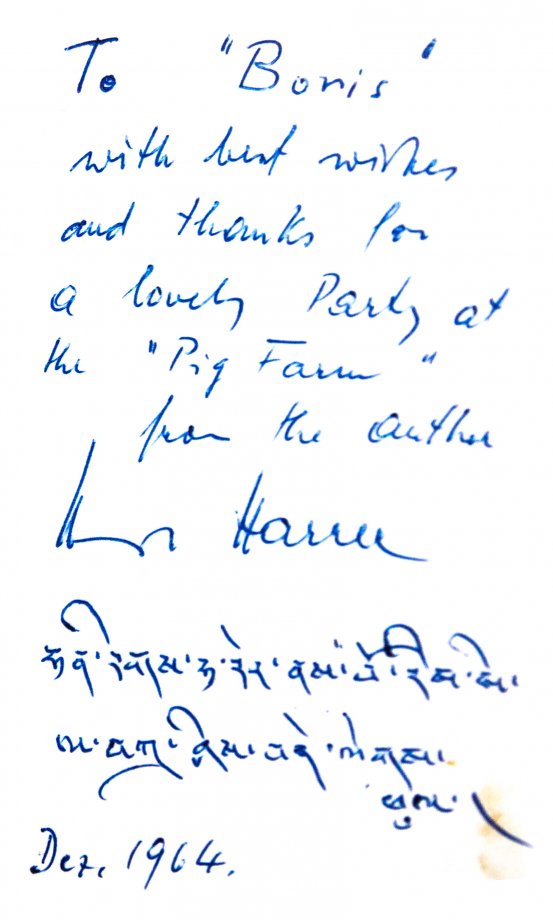 To "Boris"
with best wishes
and thanks for
a lovely Party at
the "Pig Farm"
from the author
Heinrich Harrer
ལ་བཀྲ་ཤིས་བདེ་ལེགས་
ཕུལ་
Dez. 1964.